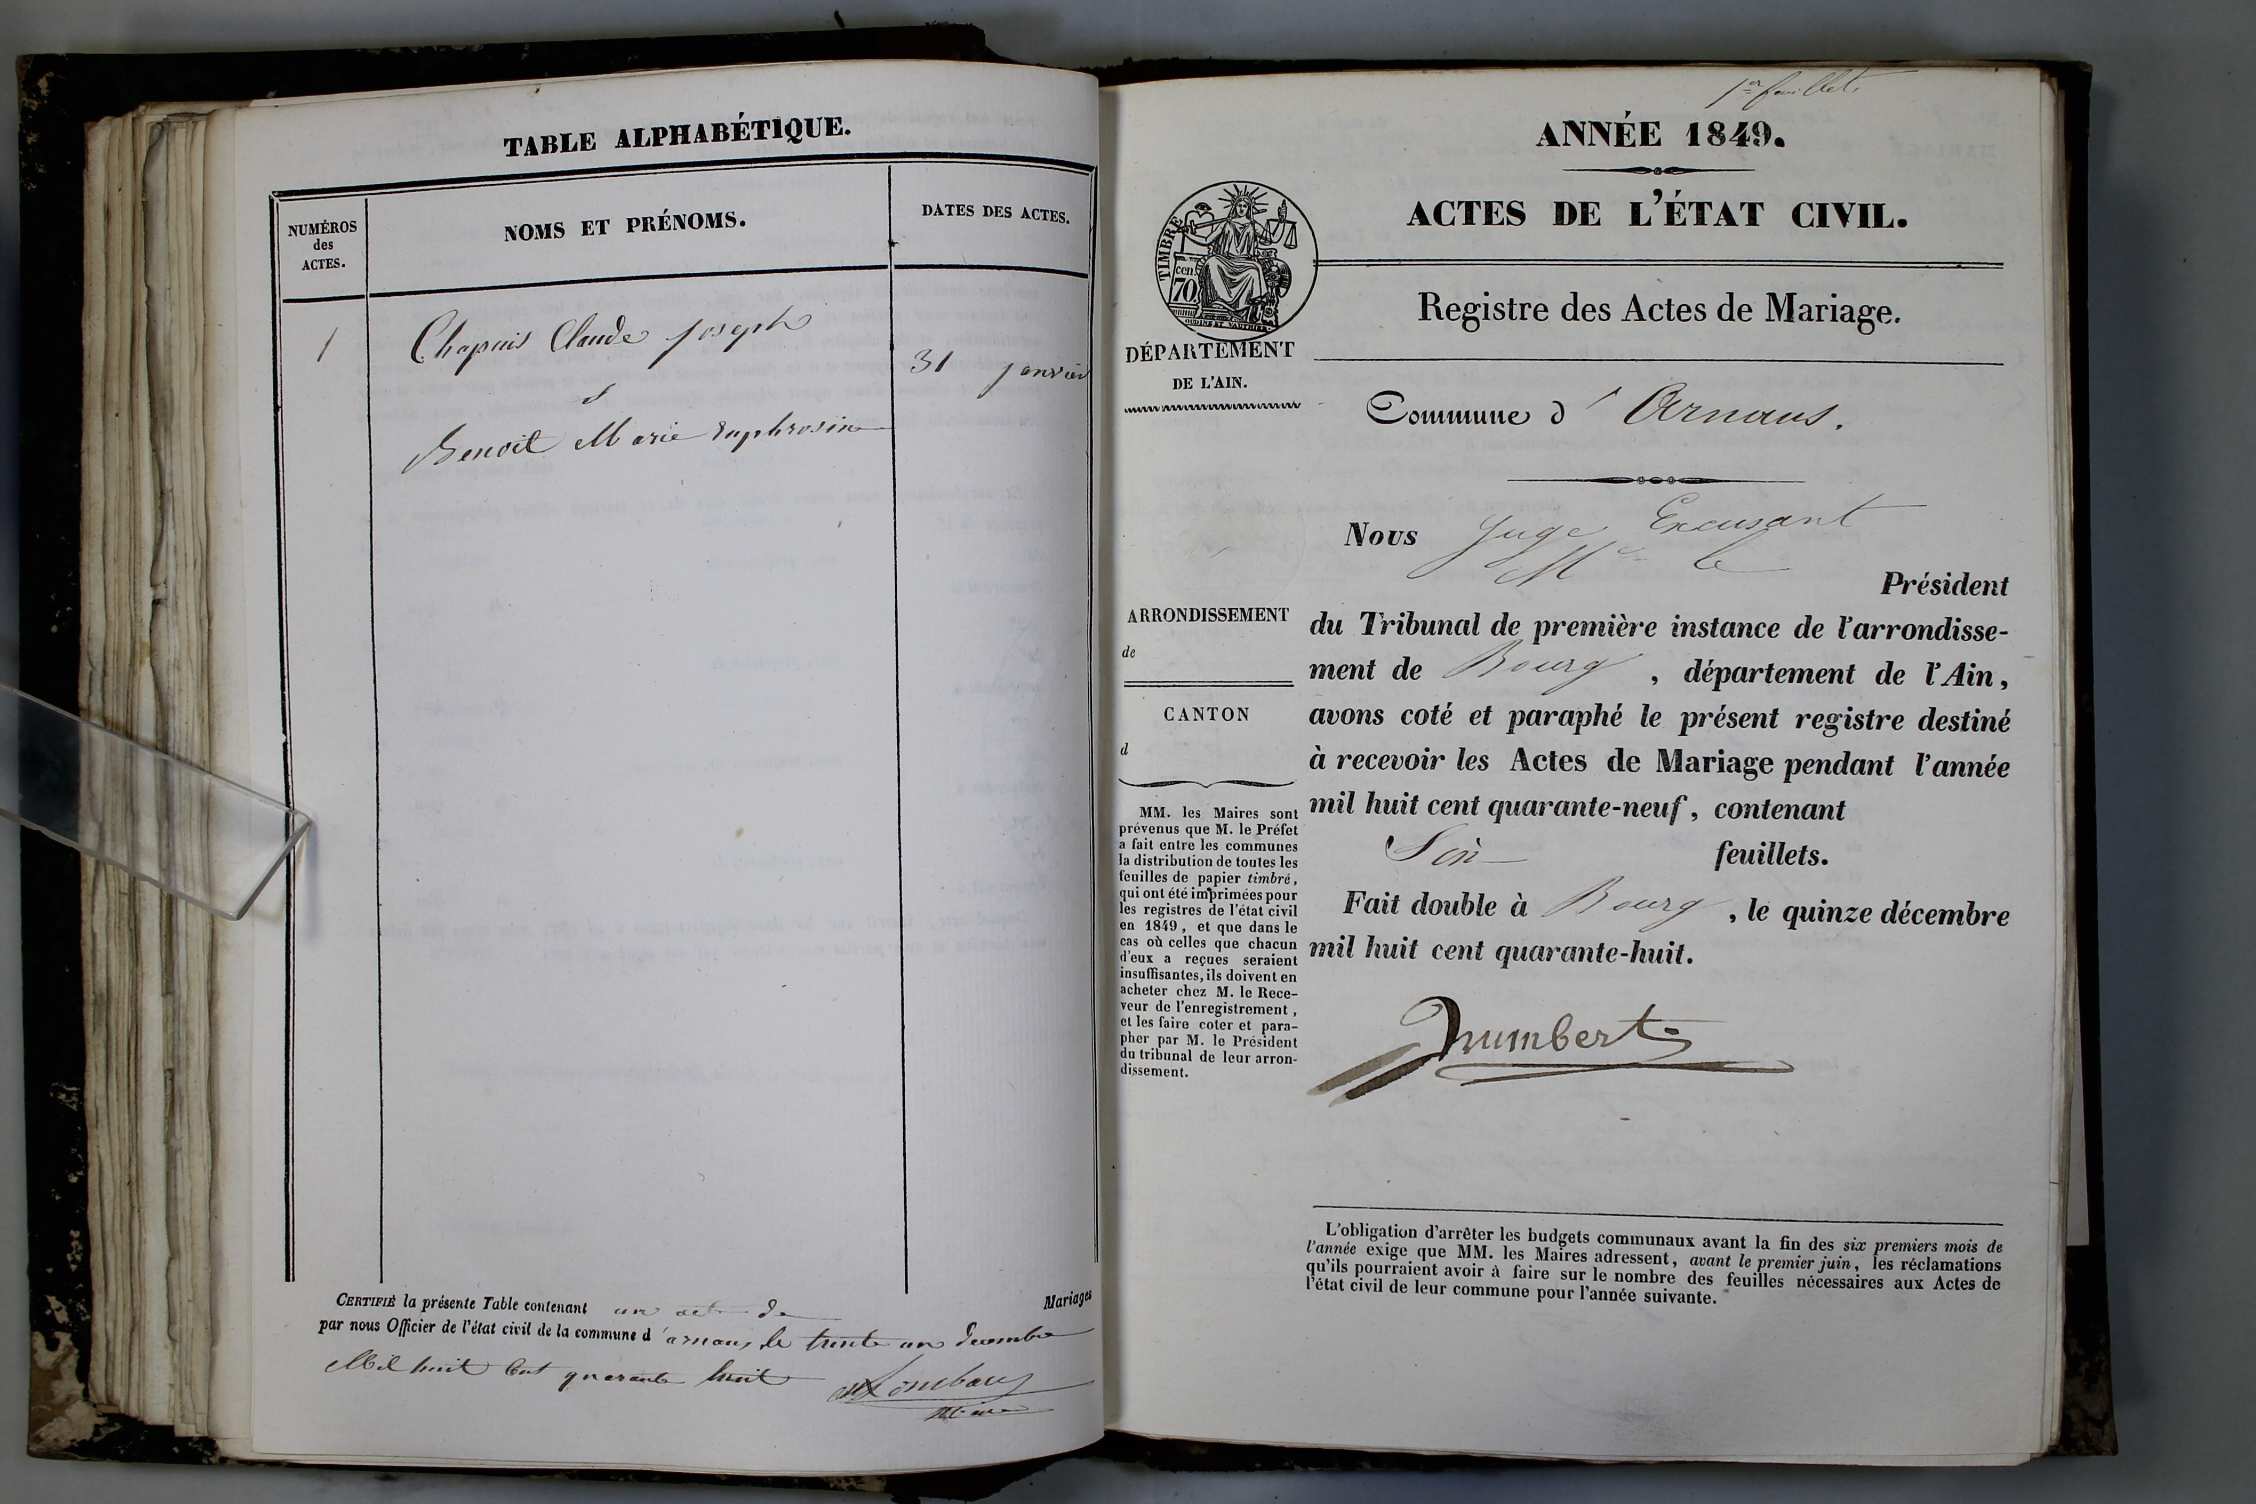 TABLE ALPHABÉTIQUE.
NUMÉROS
des
ACTES.
NOMS ET PRÉNOMS.
DATES DES ACTES.
1
Chapuis Claude joseph
31 janvier
&
Benoit Marie Euphrosine
CERTIFIÉ la présente Table contenant un acte de Mariages
par nous Officier de l'état civil de la commune d'arnans le trente un decembre
Mil huit Cent quarante huit
Maire
1er feuillet.
ANNÉE 1849.
ACTES DE L'ÉTAT CIVIL.
TIMBRE
70 cen.
Registre des Actes de Mariage.
DÉPARTEMENT
DE L'AIN.
Commune d'Arnans.
Nous Juge
Président
du Tribunal de première instance de l'arrondisse-
ment de Bourg, département de l'Ain,
avons coté et paraphé le présent registre destiné
à recevoir les Actes de Mariage pendant l'année
mil huit cent quarante-neuf, contenant
feuillets.
Fait double à Bourg, le quinze décembre
mil huit cent quarante-huit.
humbert
ARRONDISSEMENT
de
CANTON
d
MM. les Maires sont
prévenus que M. le Préfet
a fait entre les communes
la distribution de toutes les
feuilles de papier timbré,
qui ont été imprimées pour
les registres de l'état civil
en 1849, et que dans le
cas où celles que chacun
d'eux a reçues seraient
insuffisantes, ils doivent en
acheter chez M. le Rece-
veur de l'enregistrement,
et les faire coter et para-
pher par M. le Président
du tribunal de leur arron-
dissement.
L'obligation d'arrêter les budgets communaux avant la fin des six premiers mois de
l'année exige que MM. les Maires adressent, avant le premier juin, les réclamations
qu'ils pourraient avoir à faire sur le nombre des feuilles nécessaires aux Actes de
l'état civil de leur commune pour l'année suivante.